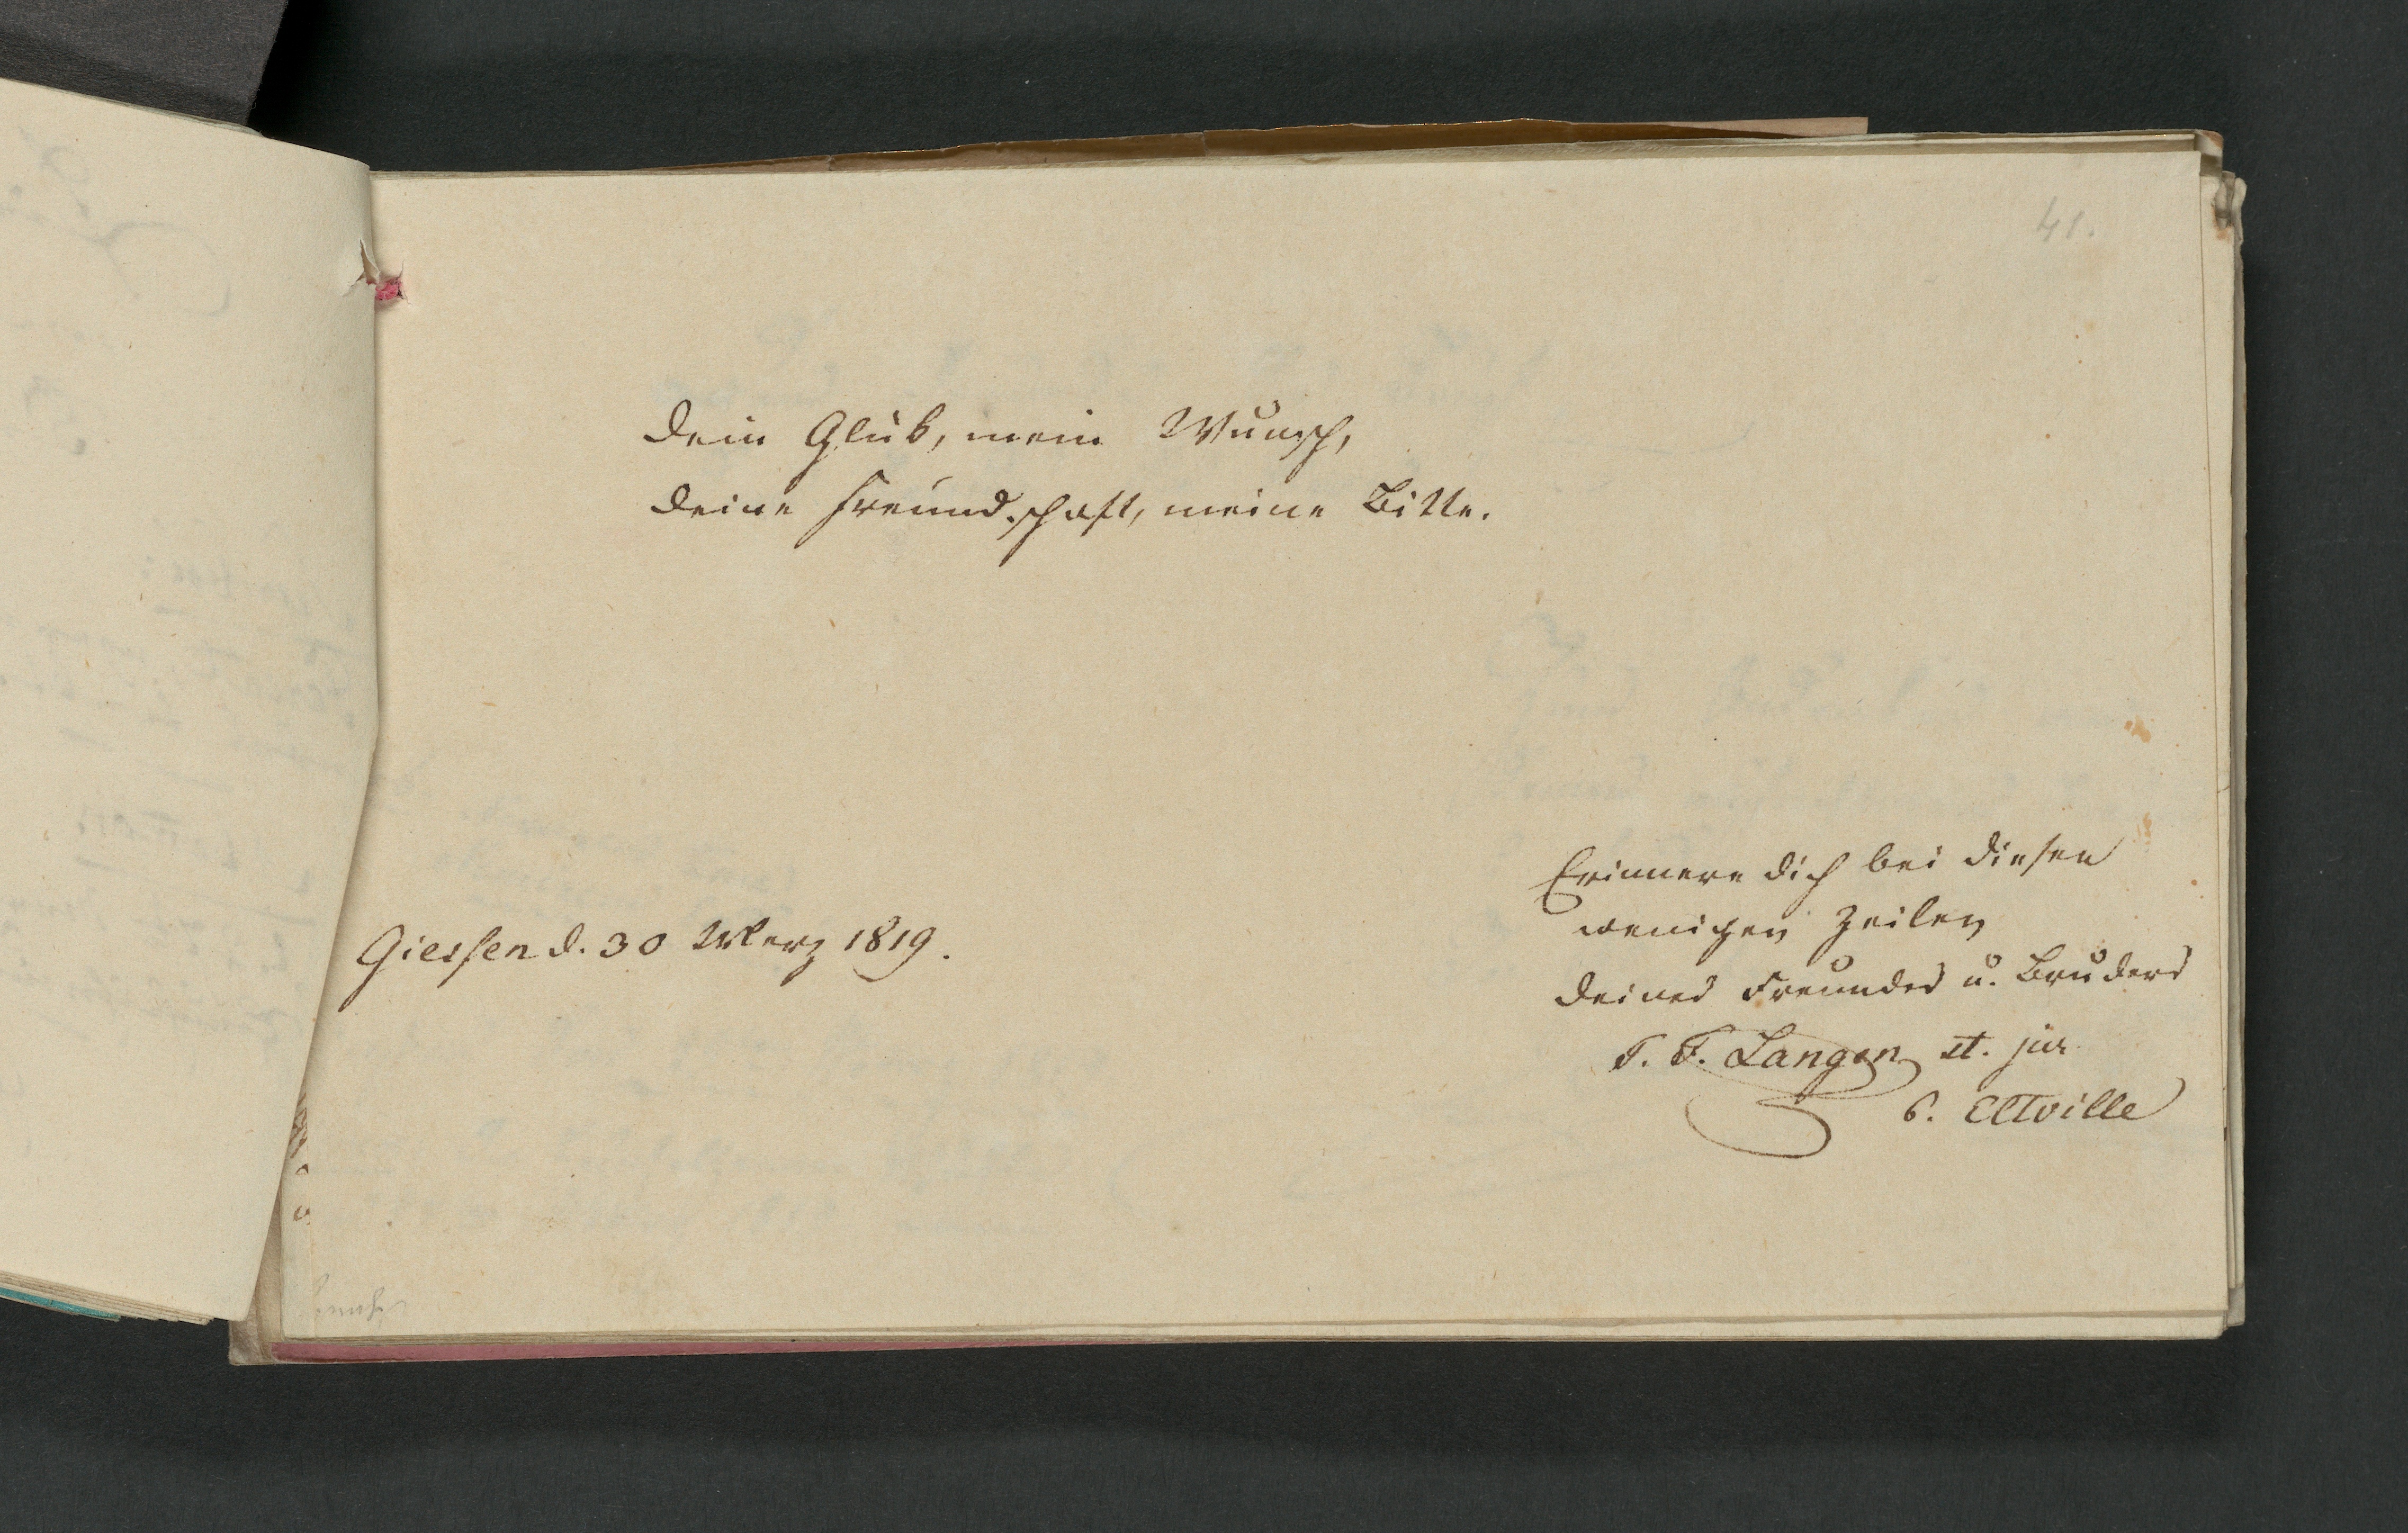 41.
Dein Glük, mein Wunsch,
Deine Freundschaft, meine Bitte.
Giessen d. 30 Merz 1819.
Erinnere dich bei diesen
wenigen Zeilen
deines Freundes u. Bruders
F. Langen st. jur
Eltville